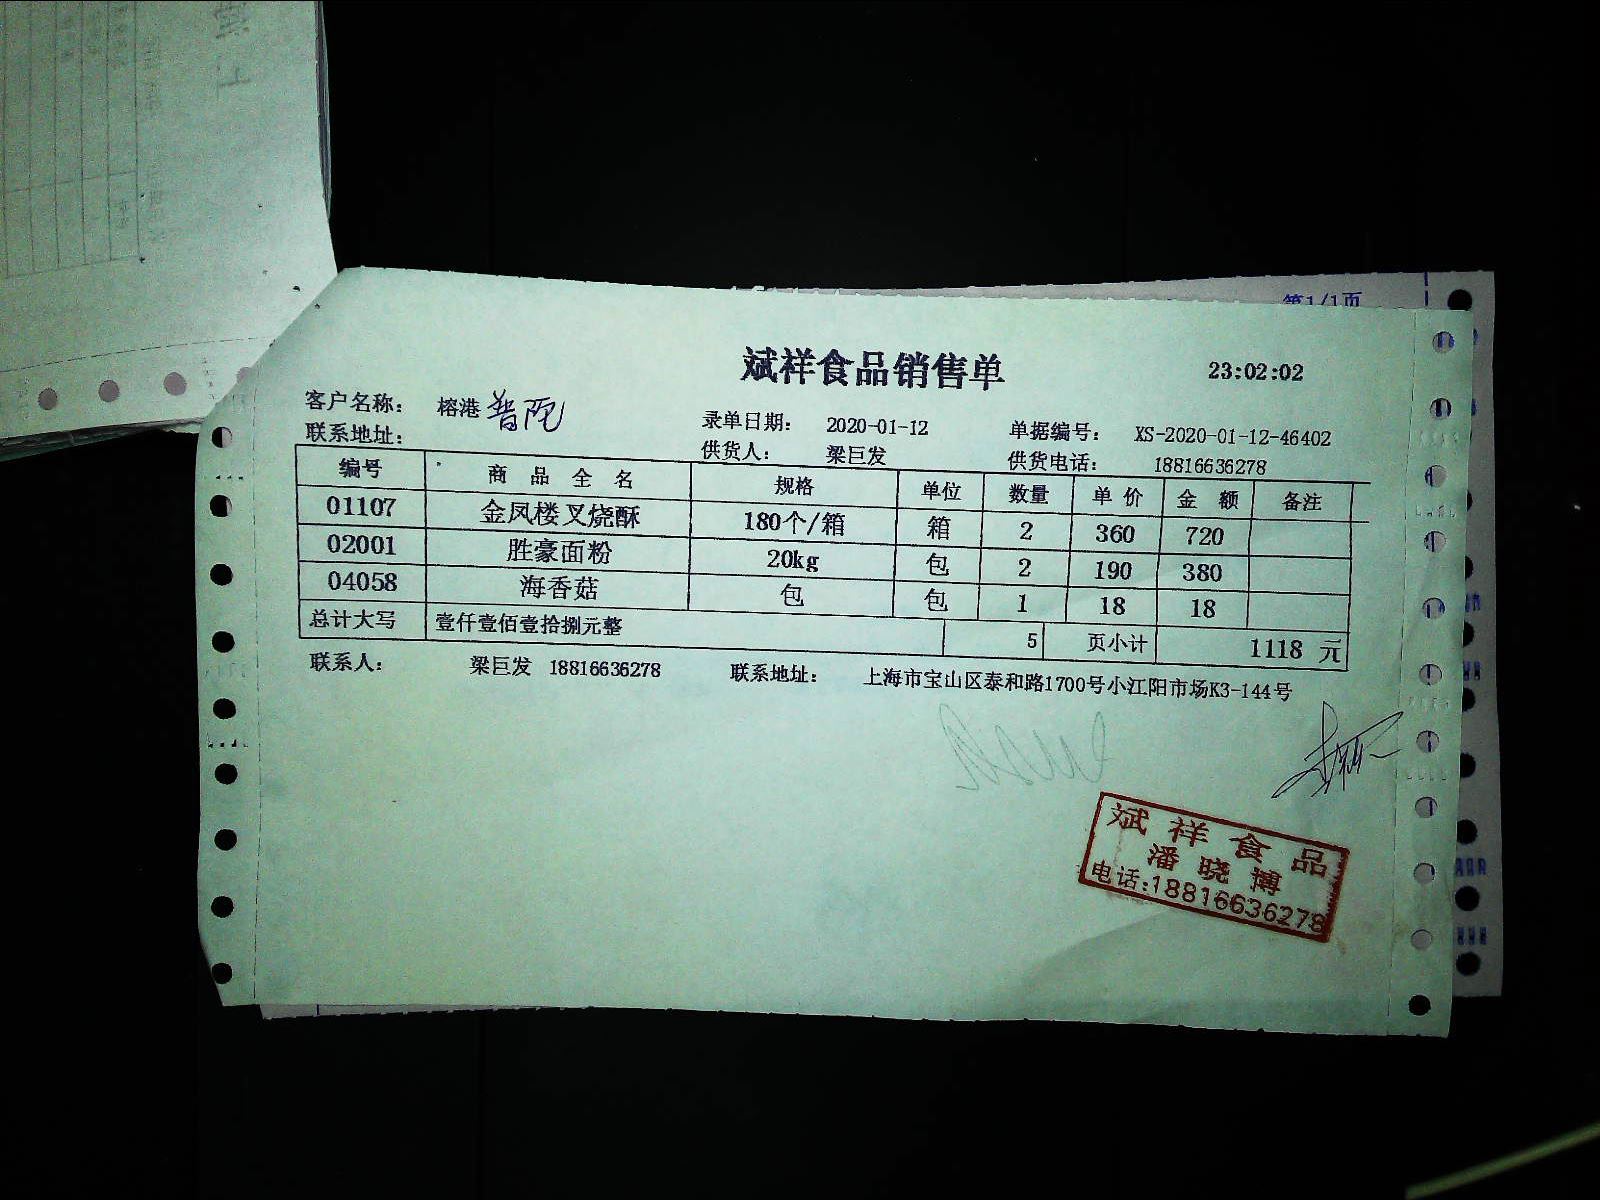 第1/1页
斌祥食品销售单 23:02:02
客户名称： 榕港 普陀 录单日期： 2020-01-12 单据编号： XS-2020-01-12-46402
联系地址： 供货人： 梁巨发 供货电话： 18816636278
编号 商品全名 规格 单位 数量 单价 金额 备注
01107 金凤楼叉烧酥 180个/箱 箱 2 360 720
02001 胜豪面粉 20kg 包 2 190 380
04058 海香菇 包 包 1 18 18
总计大写 壹仟壹佰壹拾捌元整 5 页小计 1118 元
联系人： 梁巨发 18816636278 联系地址： 上海市宝山区泰和路1700号小江阳市场K3-144号
斌祥食品
潘晓博
电话:18816636278